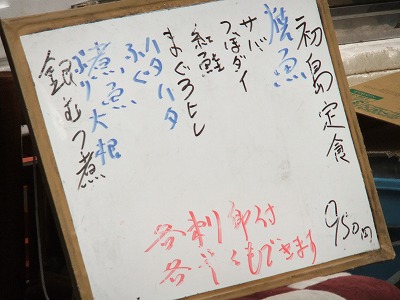 初島定食
950円
焼魚
サバ
つぼダイ
紅鮭
まぐろトレ
ハタハタ
ふぐ
煮魚
ぶり大根
銀むつ煮
各刺卸付